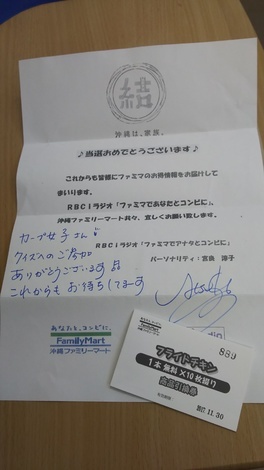 結
沖縄は、家族。
♪当選おめでとうございます♪
これからも皆様にファミマのお得情報をお届けして
まいります。
RBCiラジオ「ファミマであなたとコンビに」、
沖縄ファミリーマート共々、宜しくお願い致します。
カープ女子さん
RBCiラジオ「ファミマでアナタとコンビに」
クイズへのご参加
パーソナリティ：宮良 涼子
ありがとうございます
これからも お待ちしてまーす
あなたと、コンビに、
FamilyMart
沖縄ファミリーマート
889
フライドチキン
1本無料×10枚綴り
商品引換券
11.30